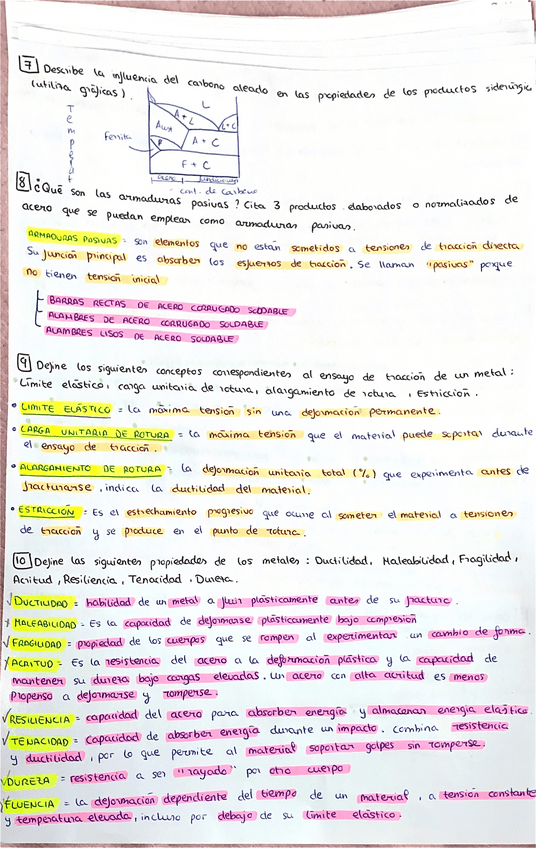 7 Describe la influencia del carbono aleado en las propiedades de los productos siderúrgic
(utiliza gráficas).
Temperat
L
A + L
L+C
Aust
A + C
Ferrita
F
F + C
acero
fundiciones
cont. de carbono
8 ¿Qué son las armaduras pasivas? Cita 3 productos elaborados o normalizados de
acero que se puedan emplear como armaduras pasivas.
ARMADURAS PASIVAS: son elementos que no están sometidos a tensiones de tracción directa
Su función principal es absorber los esfuerzos de tracción. Se llaman "pasivas" porque
no tienen tensión inicial
BARRAS RECTAS DE ACERO CORRUGADO SOLDABLE
ALAMBRES DE ACERO CORRUGADO SOLDABLE
ALAMBRES LISOS DE ACERO SOLDABLE
9 Define los siguientes conceptos correspondientes al ensayo de tracción de un metal:
Límite elástico, carga unitaria de rotura, alargamiento de rotura, Estricción.
• LIMITE ELÁSTICO = La máxima tensión sin una deformación permanente.
• CARGA UNITARIA DE ROTURA = la máxima tensión que el material puede soportar durante
el ensayo de tracción.
• ALARGAMIENTO DE ROTURA = la deformación unitaria total (%) que experimenta antes de
fracturarse, indica la ductilidad del material.
• ESTRICCIÓN = Es el estrechamiento progresivo que ocurre al someter el material a tensiones
de tracción y se produce en el punto de rotura.
10 Define las siguientes propiedades de los metales: Ductilidad, Maleabilidad, Fragilidad,
Acritud, Resiliencia, Tenacidad, Dureza.
√ DUCTILIDAD = habilidad de un metal a fluir plásticamente antes de su fractura.
√ MALEABILIDAD = Es la capacidad de deformarse plásticamente bajo compresión
√ FRAGILIDAD = propiedad de los cuerpos que se rompen al experimentar un cambio de forma.
√ ACRITUD = Es la resistencia del acero a la deformación plástica y la capacidad de
mantener su dureza bajo cargas elevadas. Un acero con alta acritud es menos
propenso a deformarse y romperse.
√ RESILIENCIA = capacidad del acero para absorber energía y almacenar energía elástica.
√ TENACIDAD = capacidad de absorber energía durante un impacto. combina resistencia
y ductilidad, por lo que permite al material soportar golpes sin romperse.
√ DUREZA = resistencia a ser "rayado" por otro cuerpo
√ FLUENCIA = la deformación dependiente del tiempo de un material, a tensión constante
y temperatura elevada, incluso por debajo de su límite elástico.